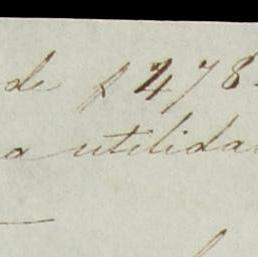 de $ 2478
a utilida